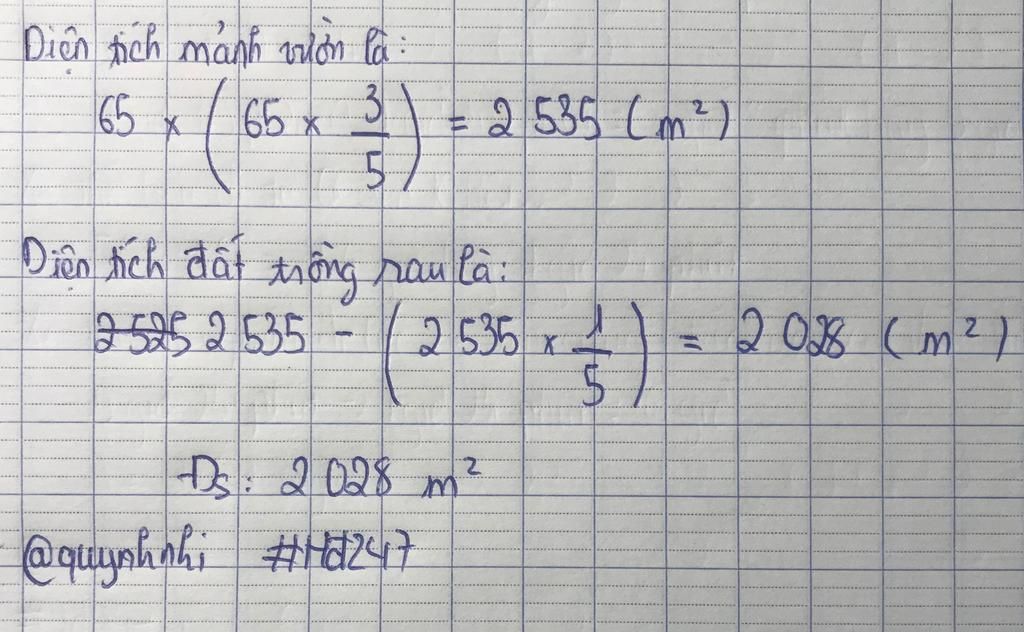 Diện tích mảnh vườn là:
65 × ( 65 × 3/5 ) = 2 535 ( m² )
Diện tích đất trồng rau là:
2 525 2 535 - ( 2 535 × 1/5 ) = 2 028 ( m² )
Đs: 2 028 m²
@quynhnhi #Hd247